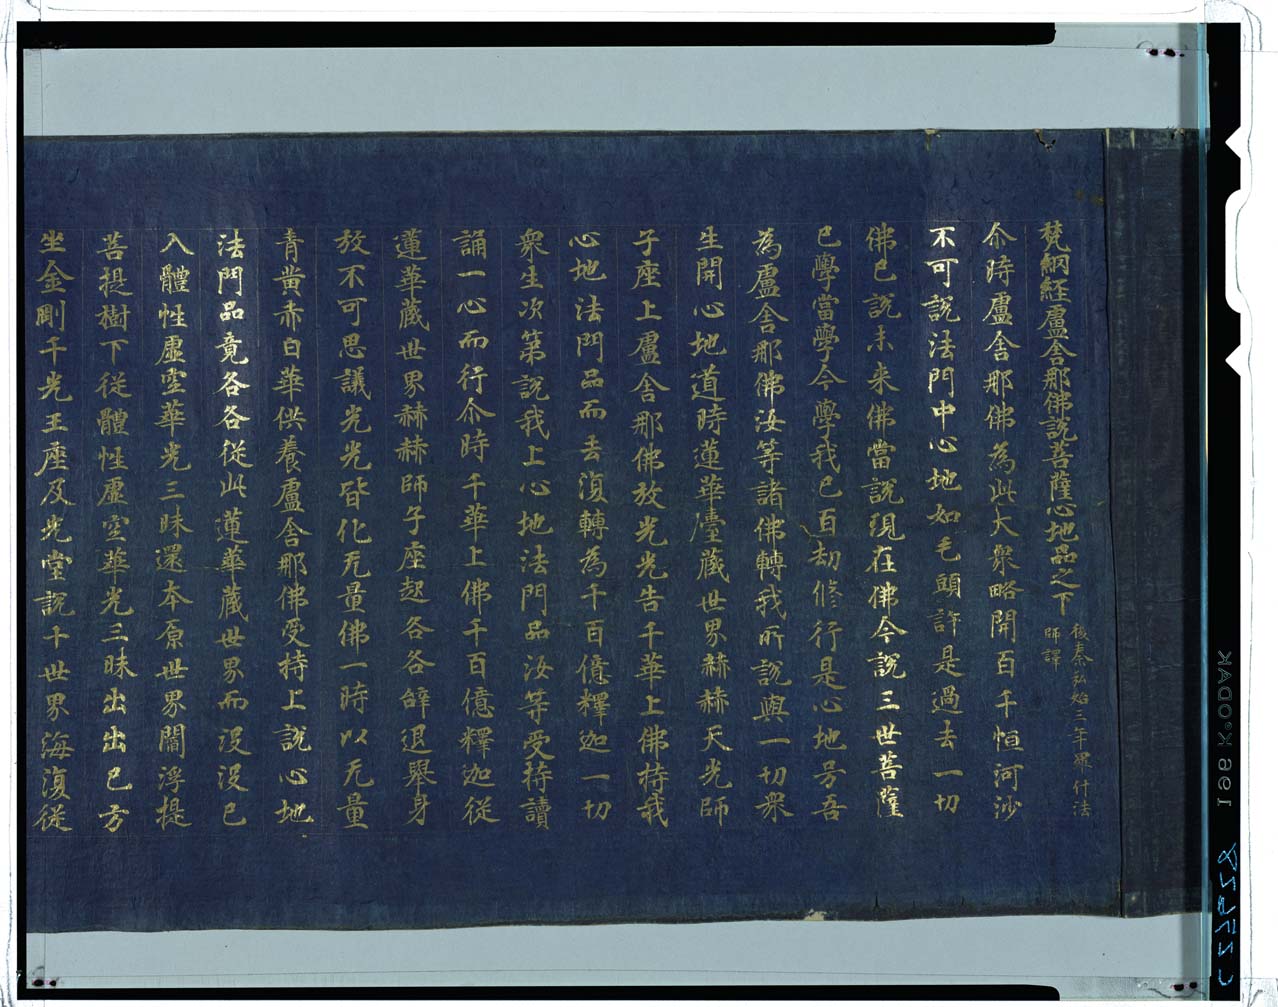 梵網経盧舍那佛說菩薩心地品之下 後秦弘始三年羅什法師譯
尒時盧舍那佛為此大衆略開百千恒河沙
不可說法門中心地如毛頭許是過去一切
佛已說未来佛當說現在佛今說三世菩薩
已學當學今學我已百劫修行是心地号吾
為盧舍那佛汝等諸佛轉我所說與一切衆
生開心地道時蓮華臺蔵世界赫赫天光師
子座上盧舍那佛放光光告千華上佛持我
心地法門品而去復轉為千百億釋迦一切
衆生次第說我上心地法門品汝等受持讀
誦一心而行尒時千華上佛千百億釋迦從
蓮華蔵世界赫赫師子座起各各辭退舉身
放不可思議光光皆化无量佛一時以无量
青黄赤白華供養盧舍那佛受持上說心地
法門品竟各各從此蓮華蔵世界而没没已
入體性虛空華光三昧還本原世界閻浮提
菩提樹下從體性虛空華光三昧出出已方
坐金剛千光王座及光堂說千世界海復從
KODAK